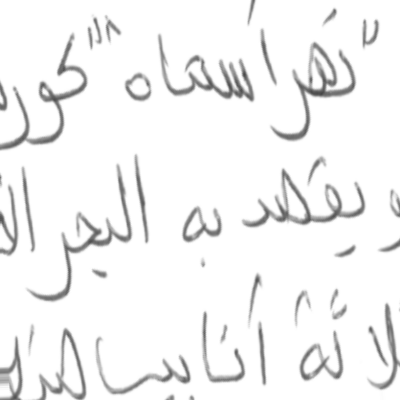 " نهر اسماه " كور
و يقصد به البحر ال
ثلاثة أنابيب